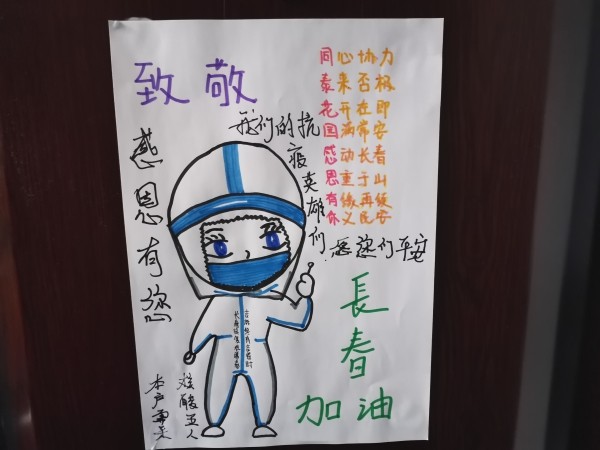 致敬
同心协力
泰来否极
花开在即
国满常安
感动长春
恩重于山
有再
你义民安
我们的抗
疫英雄们
您们平安
感恩有您
長春
加油
本户
核酸五人